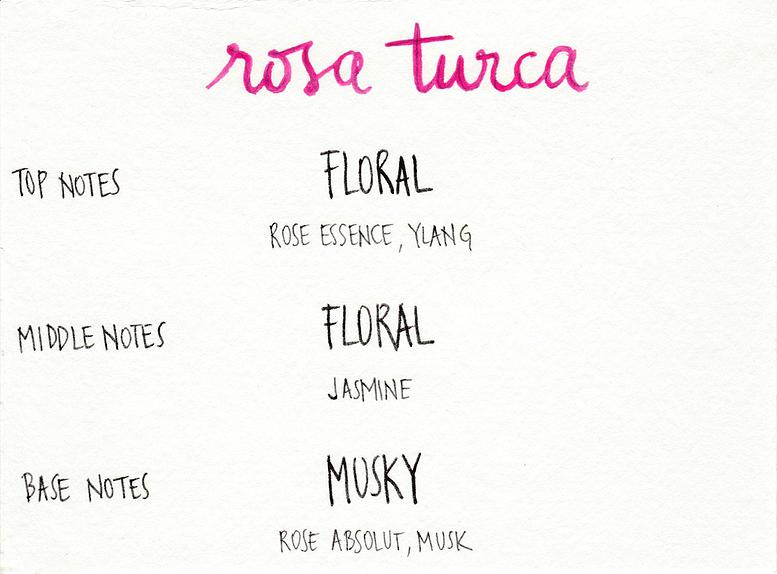 rosa turca
TOP NOTES
FLORAL
ROSE ESSENCE, YLANG
MIDDLE NOTES
FLORAL
JASMINE
BASE NOTES
MUSKY
ROSE ABSOLUT, MUSK